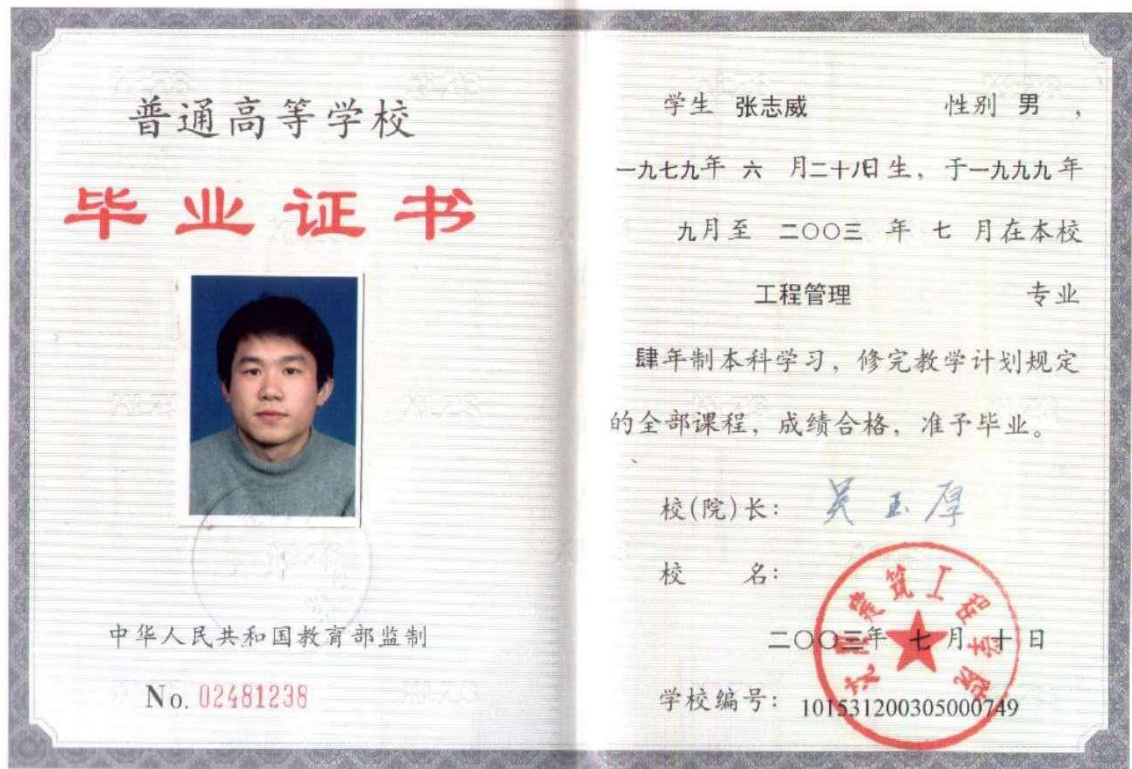 普通高等学校
毕业证书
中华人民共和国教育部监制
No. 02481238
学生 张志威 性别 男 ，
一九七九年 六 月二十八日生，于一九九九年
九月至 二〇〇三 年 七 月在本校
工程管理 专业
肆年制本科学习，修完教学计划规定
的全部课程，成绩合格，准予毕业。
校(院)长： 吴玉厚
校 名：
建筑工程学院
二〇〇三年 七 月 十 日
学校编号： 101531200305000749